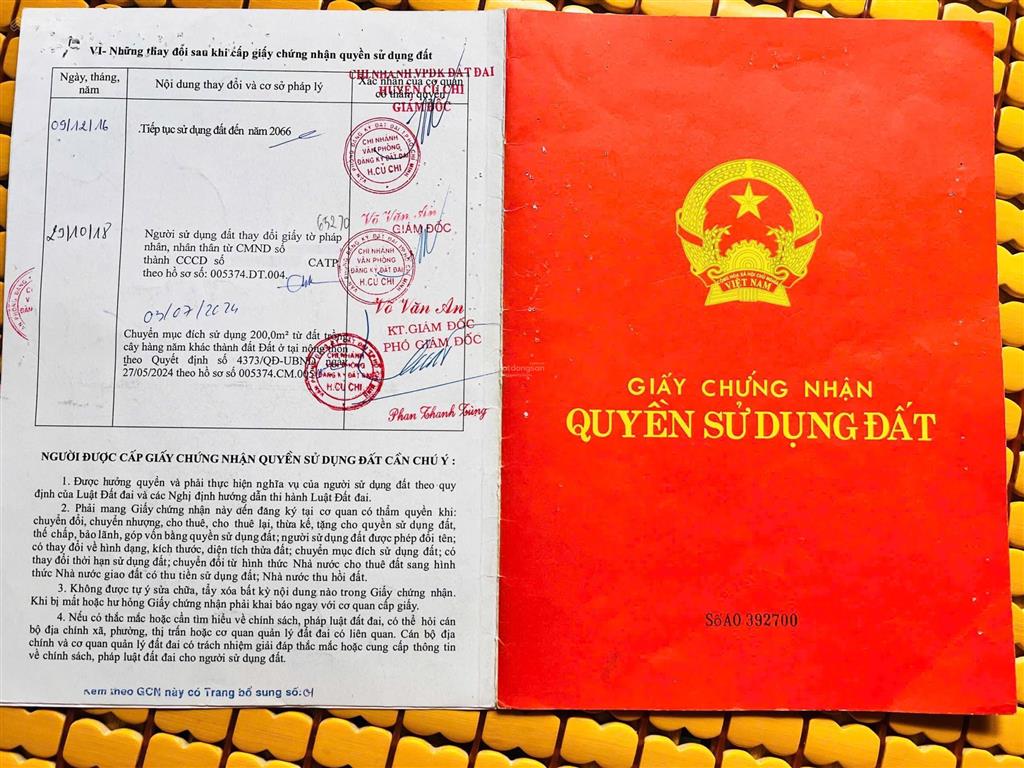 VI- Những thay đổi sau khi cấp giấy chứng nhận quyền sử dụng đất
Ngày, tháng, năm
Nội dung thay đổi và cơ sở pháp lý
Xác nhận của cơ quan có thẩm quyền
CHI NHÁNH VPĐK ĐẤT ĐAI
HUYỆN CỦ CHI
GIÁM ĐỐC
09/12/16
Tiếp tục sử dụng đất đến năm 2066
CHI NHÁNH
VĂN PHÒNG
ĐĂNG KÝ ĐẤT ĐAI
H.CỦ CHI
Võ Văn An
29/10/18
63270
Người sử dụng đất thay đổi giấy tờ pháp
nhân, nhân thân từ CMND số
thành CCCD số CATP
theo hồ sơ số: 005374.DT.004.
GIÁM ĐỐC
CHI NHÁNH
VĂN PHÒNG
ĐĂNG KÝ ĐẤT ĐAI
H.CỦ CHI
Võ Văn An
03/07/2024
Chuyển mục đích sử dụng 200,0m² từ đất trồng
cây hàng năm khác thành đất Đất ở tại nông thôn
theo Quyết định số 4373/QĐ-UBND ngày
27/05/2024 theo hồ sơ số 005374.CM.005
KT.GIÁM ĐỐC
PHÓ GIÁM ĐỐC
CHI NHÁNH
VĂN PHÒNG
ĐĂNG KÝ ĐẤT ĐAI
H.CỦ CHI
Phan Thanh Tùng
NGƯỜI ĐƯỢC CẤP GIẤY CHỨNG NHẬN QUYỀN SỬ DỤNG ĐẤT CẦN CHÚ Ý :
1. Được hưởng quyền và phải thực hiện nghĩa vụ của người sử dụng đất theo quy
định của Luật Đất đai và các Nghị định hướng dẫn thi hành Luật Đất đai.
2. Phải mang Giấy chứng nhận này đến đăng ký tại cơ quan có thẩm quyền khi:
chuyển đổi, chuyển nhượng, cho thuê, cho thuê lại, thừa kế, tặng cho quyền sử dụng đất,
thế chấp, bảo lãnh, góp vốn bằng quyền sử dụng đất; người sử dụng đất được phép đổi tên;
có thay đổi về hình dạng, kích thước, diện tích thửa đất; chuyển mục đích sử dụng đất; có
thay đổi thời hạn sử dụng đất; chuyển đổi từ hình thức Nhà nước cho thuê đất sang hình
thức Nhà nước giao đất có thu tiền sử dụng đất; Nhà nước thu hồi đất.
3. Không được tự ý sửa chữa, tẩy xóa bất kỳ nội dung nào trong Giấy chứng nhận.
Khi bị mất hoặc hư hỏng Giấy chứng nhận phải khai báo ngay với cơ quan cấp giấy.
4. Nếu có thắc mắc hoặc cần tìm hiểu về chính sách, pháp luật đất đai, có thể hỏi cán
bộ địa chính xã, phường, thị trấn hoặc cơ quan quản lý đất đai có liên quan. Cán bộ địa
chính và cơ quan quản lý đất đai có trách nhiệm giải đáp thắc mắc hoặc cung cấp thông tin
về chính sách, pháp luật đất đai cho người sử dụng đất.
Kèm theo GCN này có Trang bổ sung số: 01
VIỆT NAM
GIẤY CHỨNG NHẬN
QUYỀN SỬ DỤNG ĐẤT
Số AO 392700